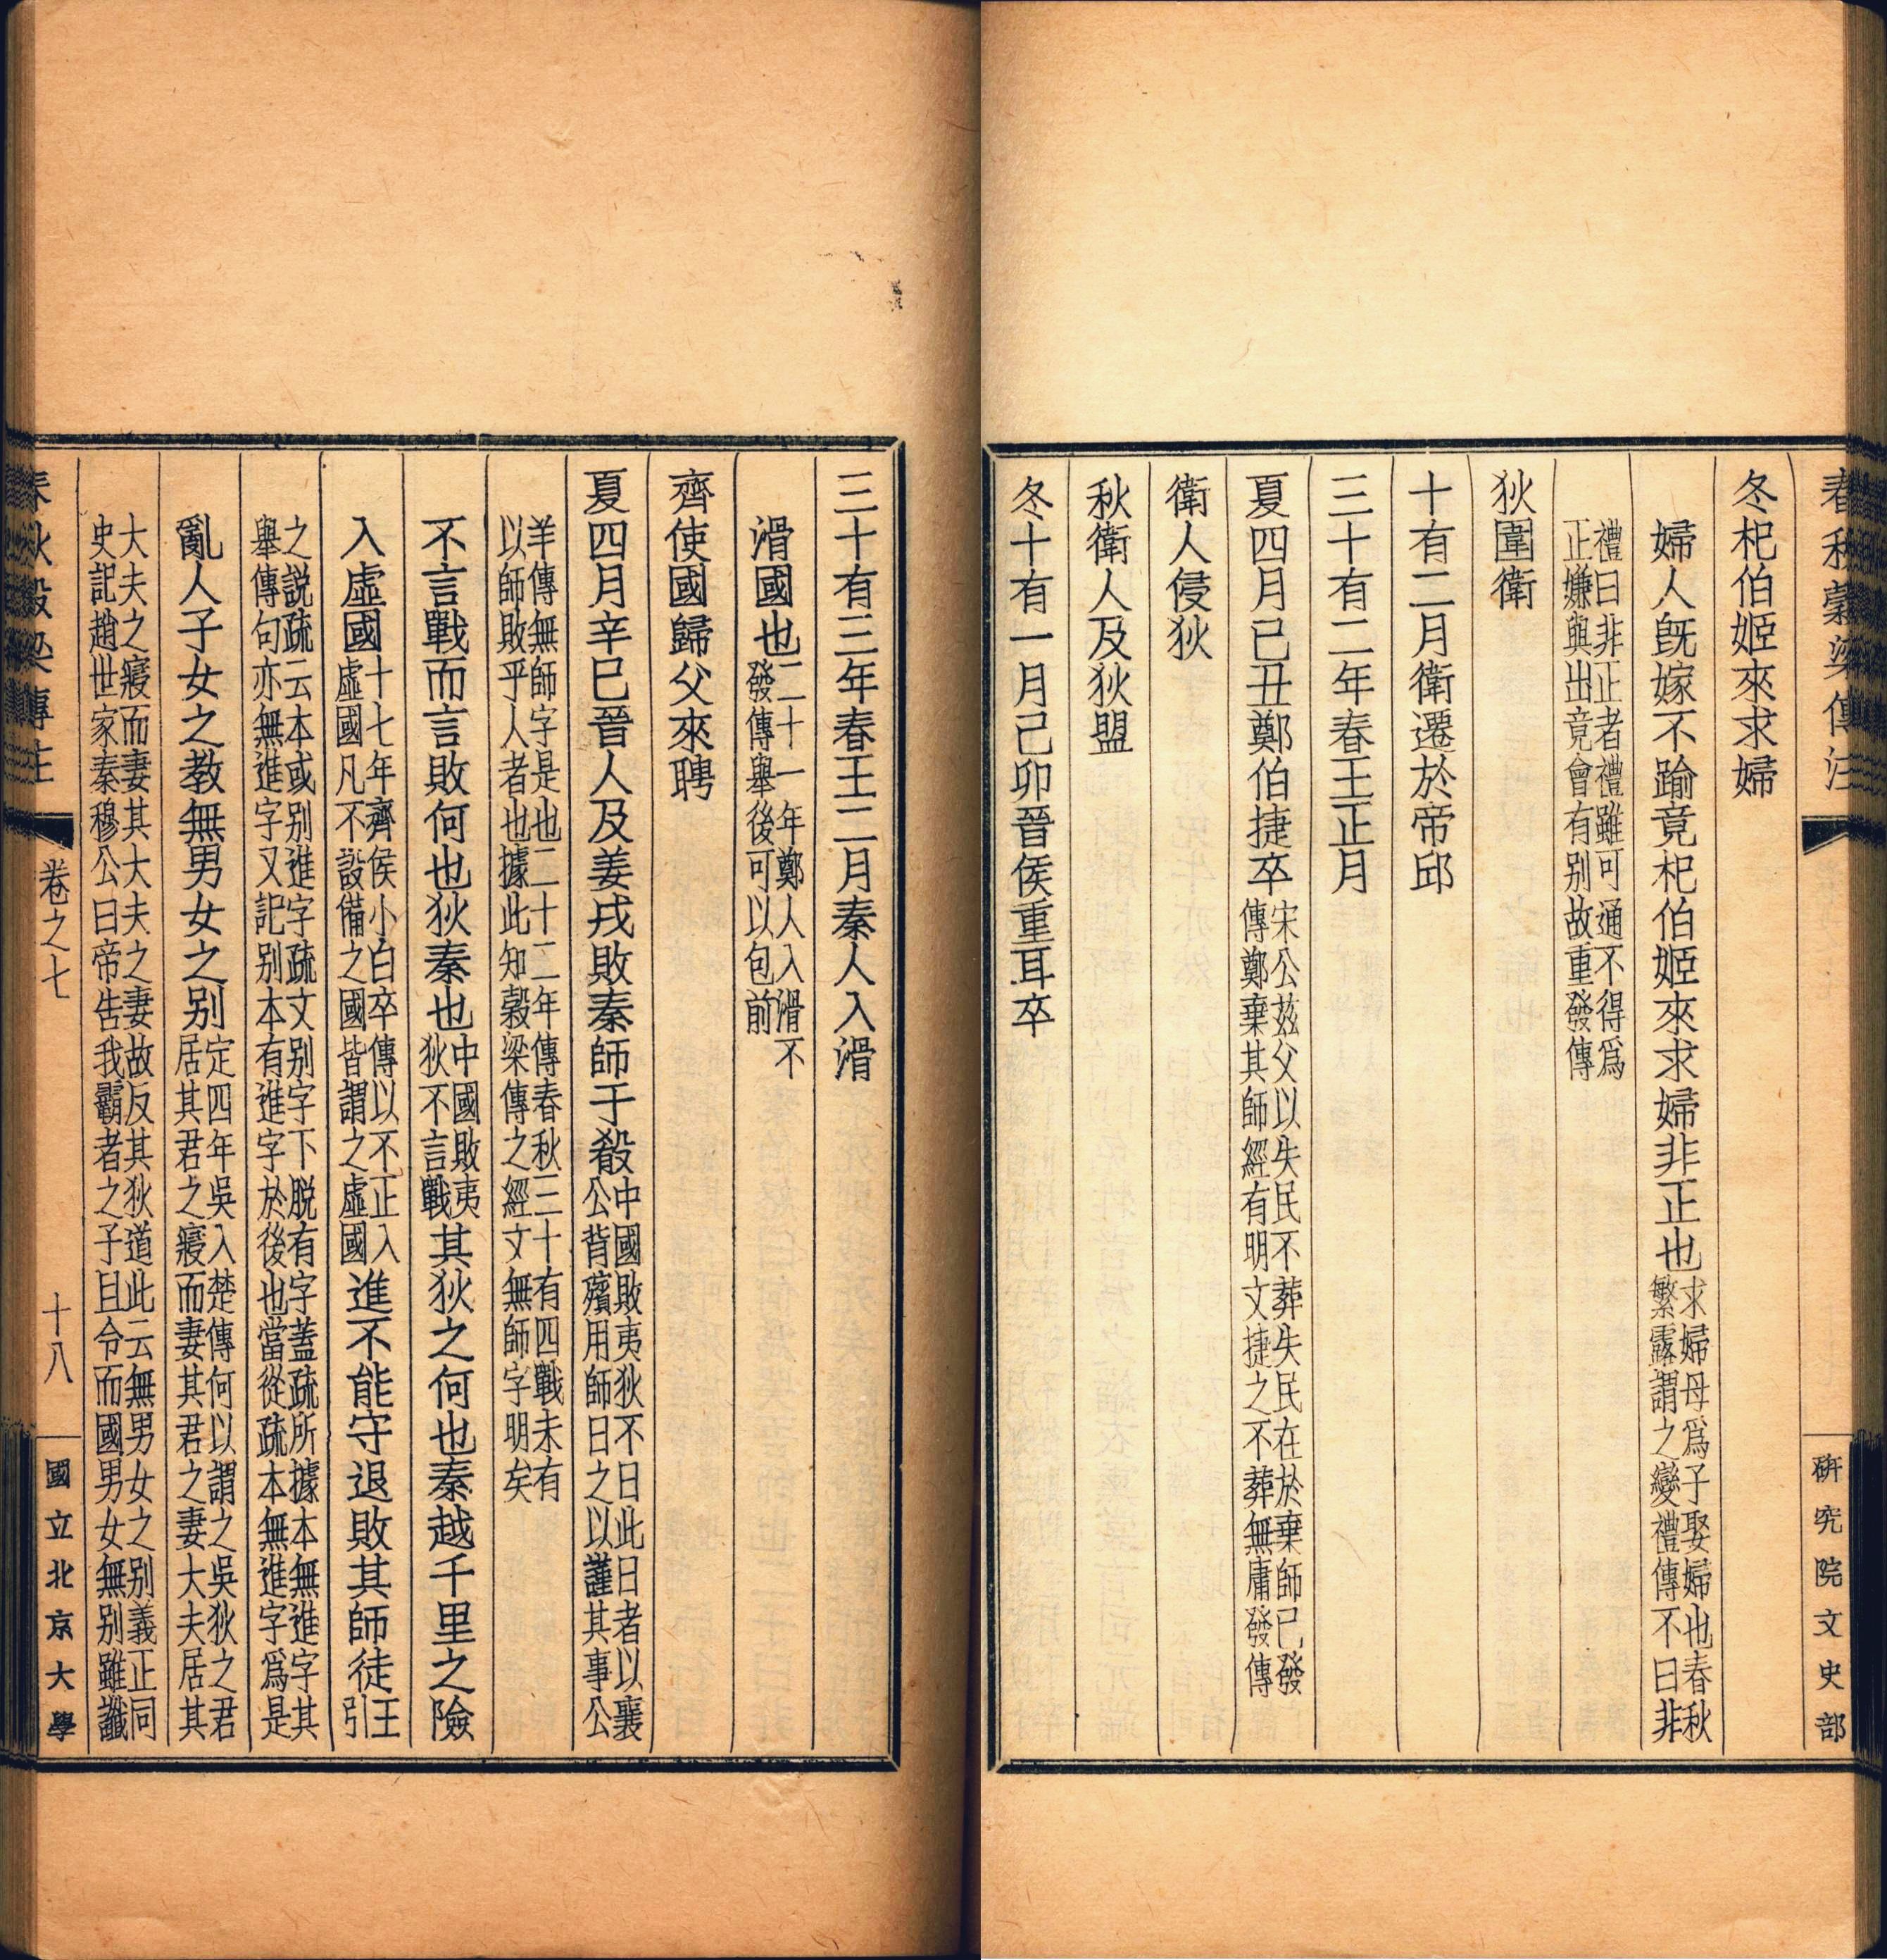 春秋穀梁傳注
研究院文史部
冬杞伯姬來求婦
婦人旣嫁不踰竟杞伯姬來求婦非正也求婦母爲子娶婦也春秋繁露謂之變禮傳不曰非
禮曰非正者禮雖可通不得爲正嫌與出竟會有别故重發傳
狄圍衛
十有二月衛遷於帝邱
三十有二年春王正月
夏四月己丑鄭伯捷卒宋公茲父以失民不葬失民在於棄師已發傳鄭棄其師經有明文捷之不葬無庸發傳
衛人侵狄
秋衛人及狄盟
冬十有一月己卯晉侯重耳卒
三十有三年春王二月秦人入滑
滑國也二十一年鄭人入滑不發傳舉後可以包前
齊使國歸父來聘
夏四月辛巳晉人及姜戎敗秦師于殽中國敗夷狄不日此日者以襄公背殯用師日之以謹其事公
羊傳無師字是也二十二年傳春秋三十有四戰未有以師敗乎人者也據此知穀梁傳之經文無師字明矣
不言戰而言敗何也狄秦也中國敗夷狄不言戰其狄之何也秦越千里之險
入虛國十七年齊侯小白卒傳以不正入虛國凡不設備之國皆謂之虛國進不能守退敗其師徒王引
之説疏云本或别進字疏文别字下脱有字蓋疏所據本無進字其舉傳句亦無進字又記别本有進字於後也當從疏本無進字爲是
亂人子女之教無男女之别定四年吳入楚傳何以謂之吳狄之君居其君之寢而妻其君之妻大夫居其
大夫之寢而妻其大夫之妻故反其狄道此云無男女之别義正同史記趙世家秦穆公曰帝告我霸者之子且令而國男女無别雖讖
春秋穀梁傳注
卷之七
十八
國立北京大學